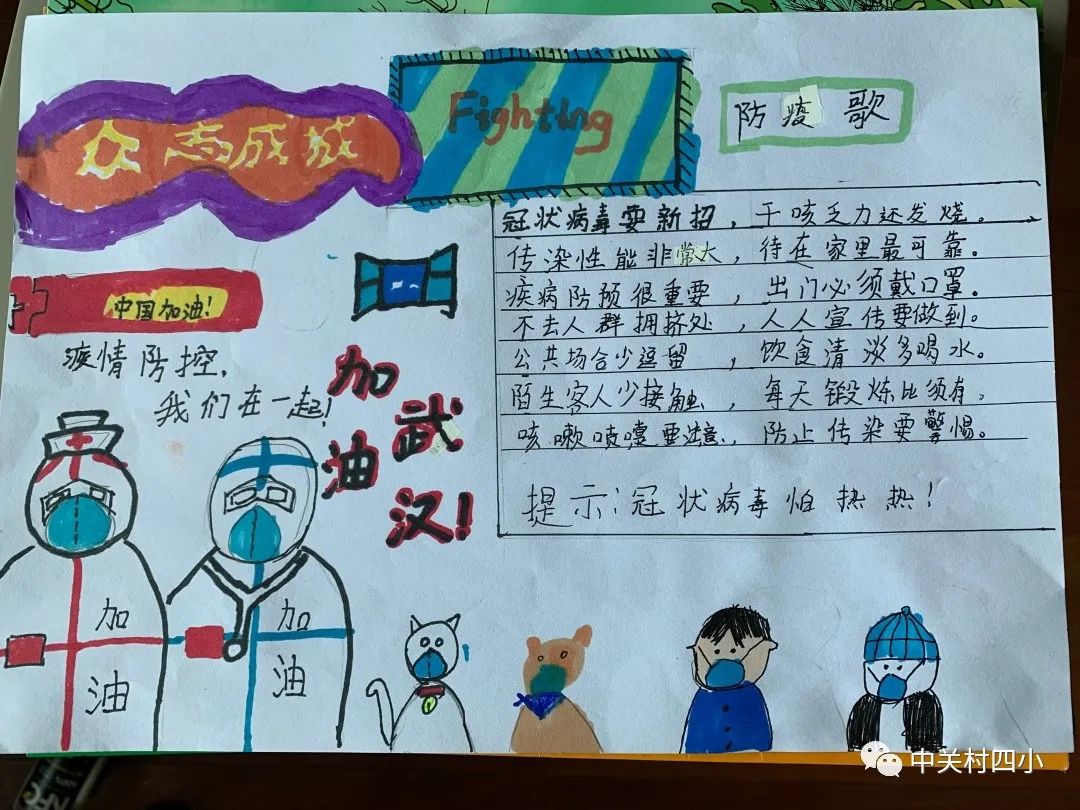 众志成城
Fighting
防疫歌
冠状病毒耍新招，干咳乏力还发烧。
传染性能非常大，待在家里最可靠。
疾病防预很重要，出门必须戴口罩。
不去人群拥挤处，人人宣传要做到。
公共场合少逗留，饮食清淡多喝水。
陌生客人少接触，每天锻炼比须有。
咳嗽喷嚏要注意，防止传染要警惕。
提示：冠状病毒怕热热！
中国加油！
疫情防控，
我们在一起！
加油
武汉！
加油
加油
中关村四小